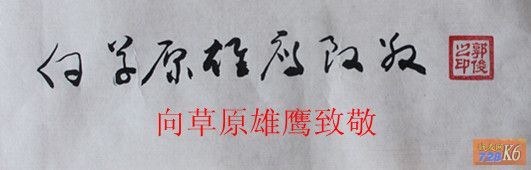 向草原雄鹰致敬
郭俊之印
向草原雄鹰致敬
战友网
728K6